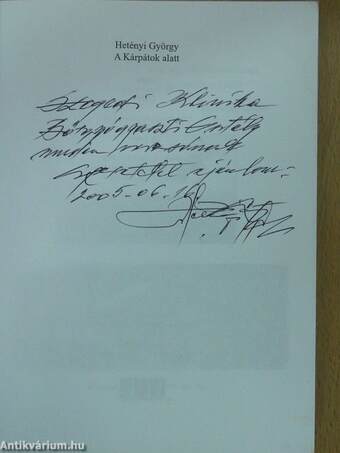 Hetényi György
A Kárpátok alatt
Szegedi Klinika
Bőrgyógyászati Osztály
minden orvosának
szeretettel ajánlom -
2005-06-16.
Antikvárium.hu